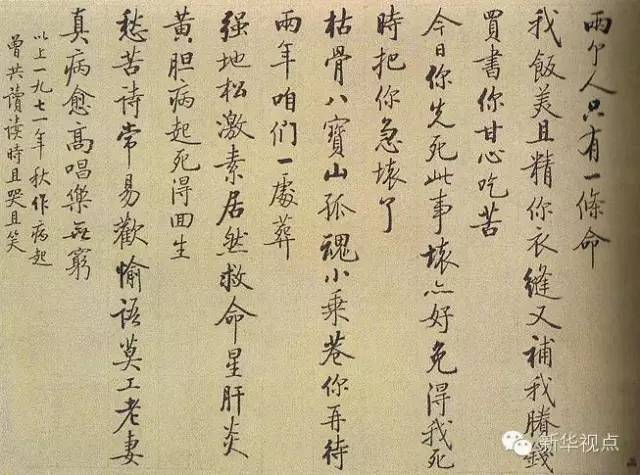 兩个人只有一條命
我飯美且精你衣縫又補我賸錢
買書你甘心吃苦
今日你先死此事壞亦好免得我死
時把你急壞了
枯骨八寶山孤魂小乘巷你再待
兩年咱們一處葬
强地松激素居然救命星肝炎
黄胆病起死得回生
愁苦诗常易歡愉语莫工老妻
真病愈高唱樂無窮
以上一九七一年秋作病起
曾共讀读時且哭且笑
新华视点